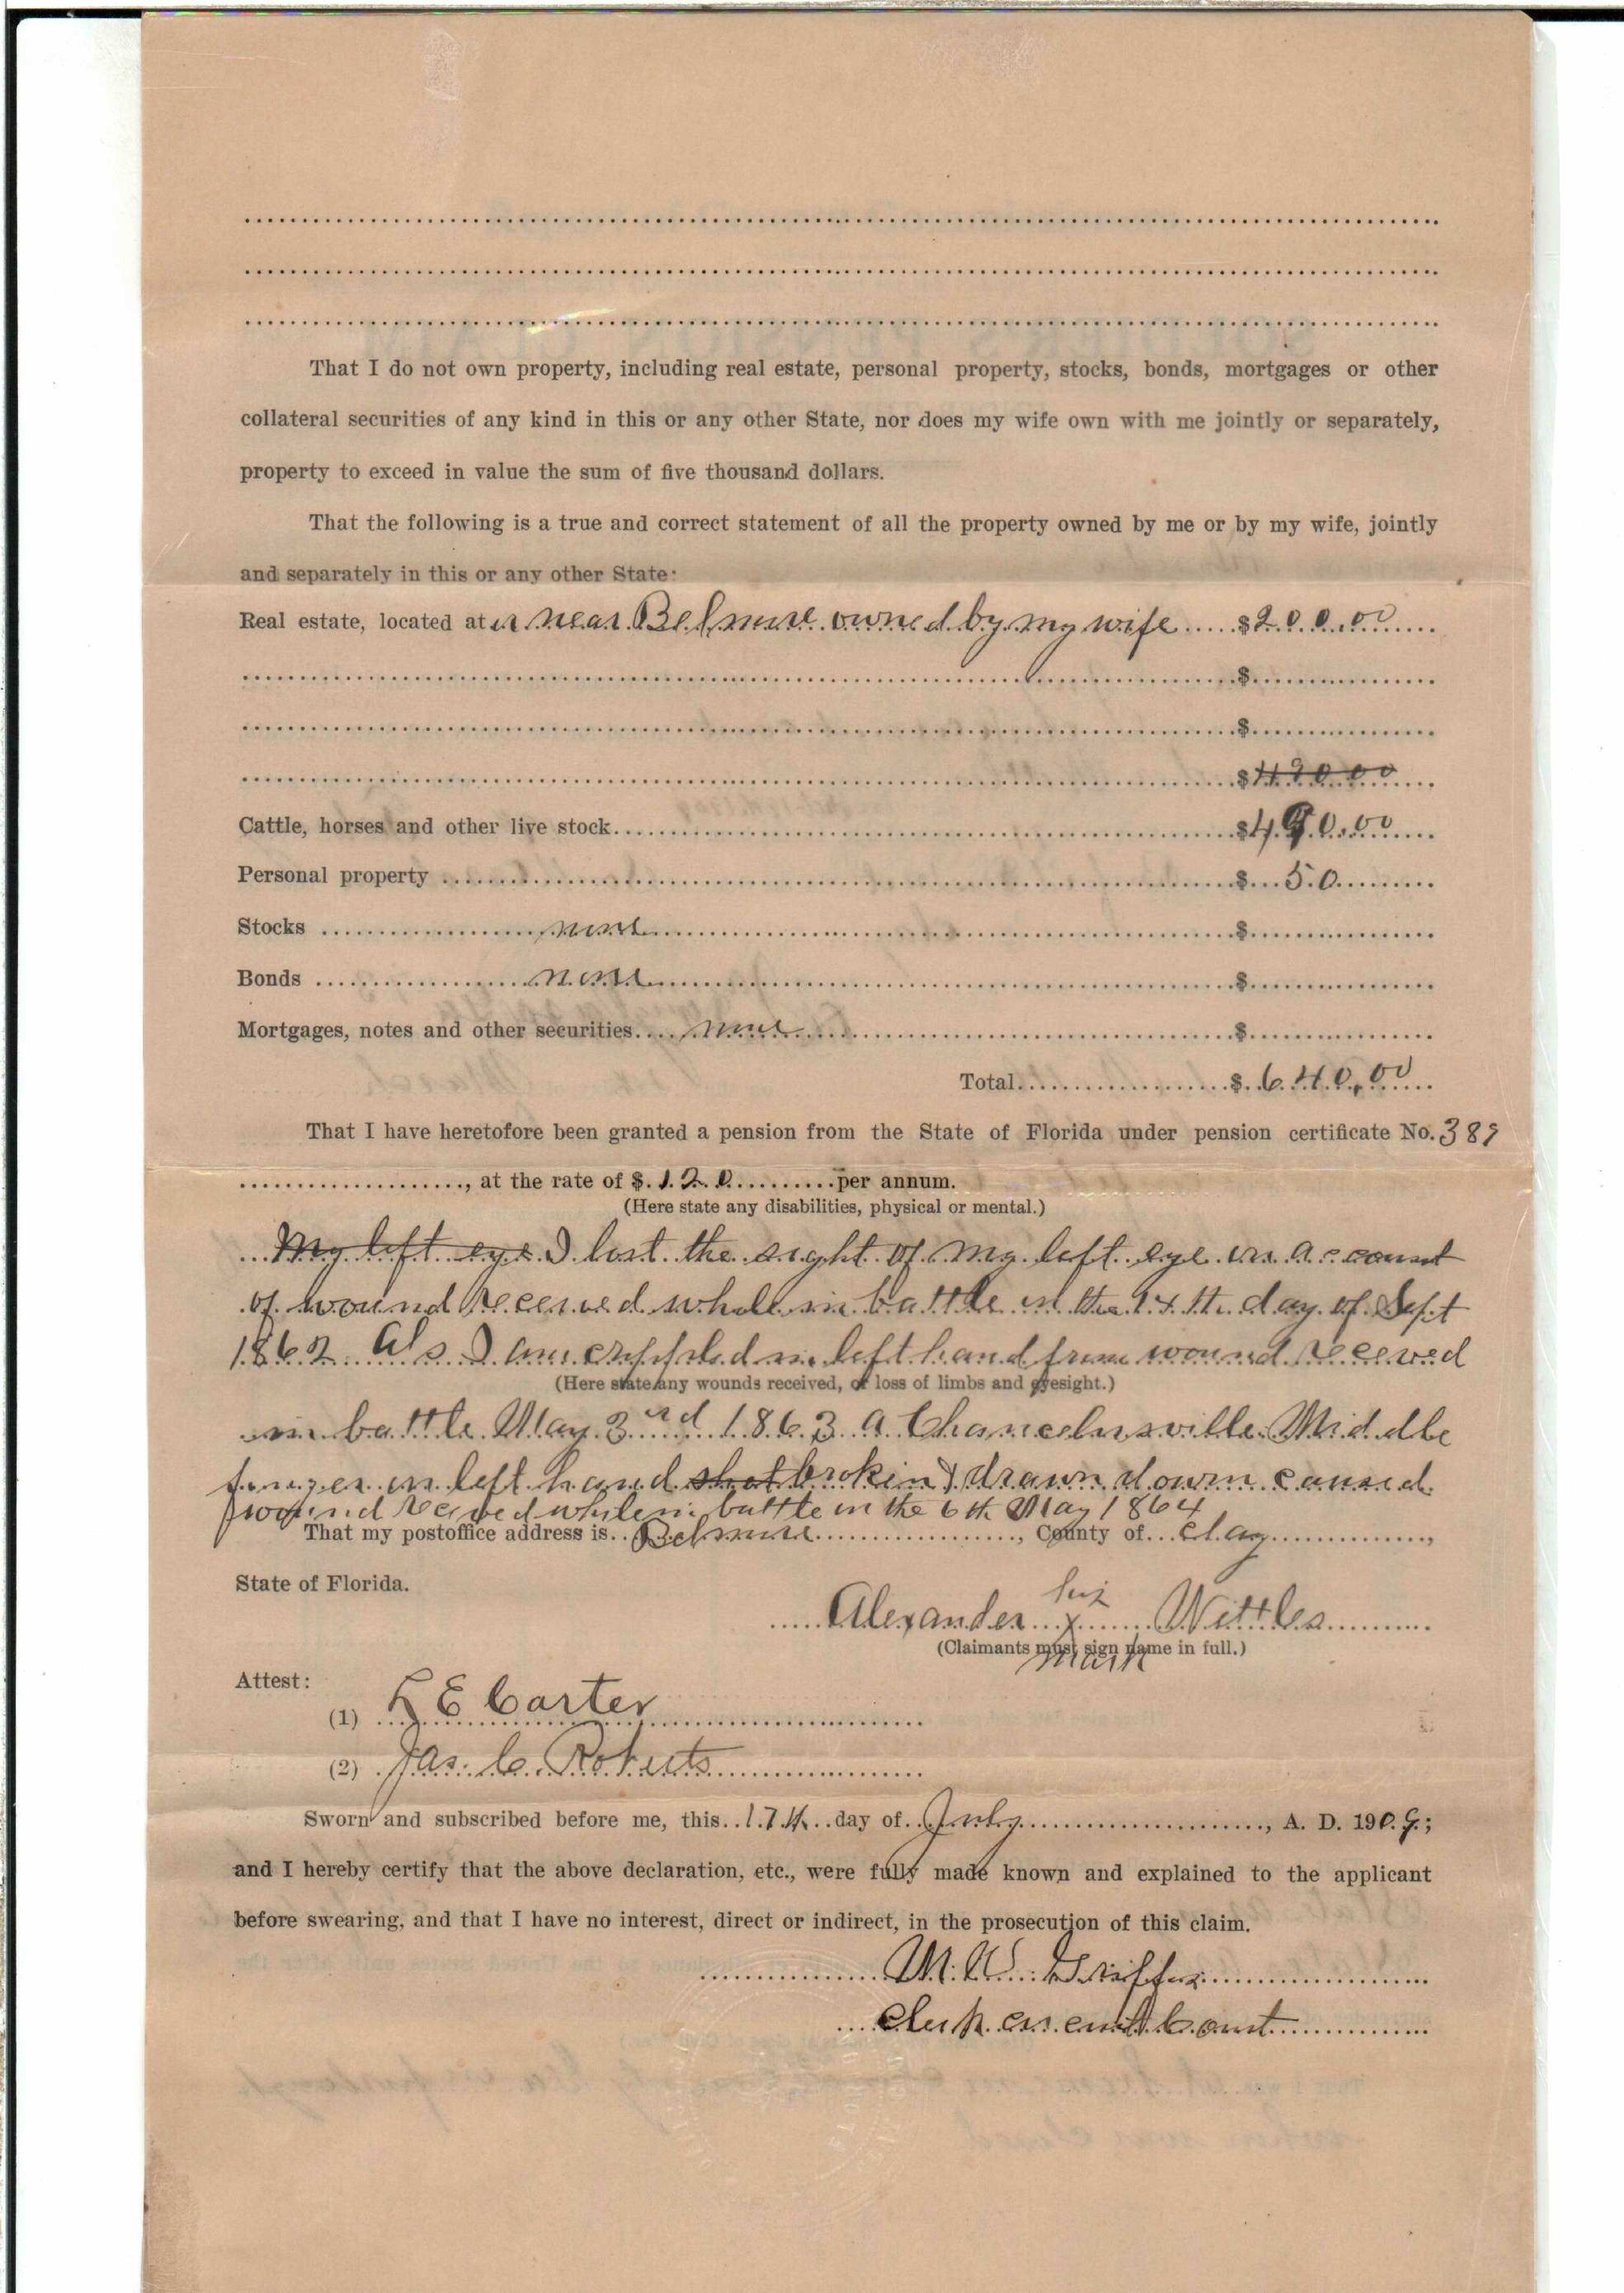 That I do not own property, including real estate, personal property, stocks, bonds, mortgages or other
collateral securities of any kind in this or any other State, nor does my wife own with me jointly or separately,
property to exceed in value the sum of five thousand dollars.
That the following is a true and correct statement of all the property owned by me or by my wife, jointly
and separately in this or any other State:
Real estate, located at near Belmore owned by my wife $200.00
$
$
$420.00
Cattle, horses and other live stock $490.00
Personal property $ 50
Stocks none $
Bonds none $
Mortgages, notes and other securities none $
Total $ 640.00
That I have heretofore been granted a pension from the State of Florida under pension certificate No. 389
, at the rate of $ 120 per annum.
(Here state any disabilities, physical or mental.)
My left eye I lost the sight of my left eye on account
of wound received while in battle on the 14th day of Sept
1862 Als I am crippled in left hand from wound received
(Here state any wounds received, or loss of limbs and eyesight.)
in battle May 3rd 1863 a Chancelorsville Middle
finger on left hand shot brokin & drawn down caused
wound received while in battle on the 6th May 1864
That my postoffice address is Belmore, County of Clay,
State of Florida.
Alexander his X Wittles
(Claimants must sign name in full.)
mark
Attest:
(1) L E Carter
(2) Jas. C. Roberts
Sworn and subscribed before me, this 17th day of July, A. D. 1909;
and I hereby certify that the above declaration, etc., were fully made known and explained to the applicant
before swearing, and that I have no interest, direct or indirect, in the prosecution of this claim.
M. W. Griffin
Clerk Circuit Court